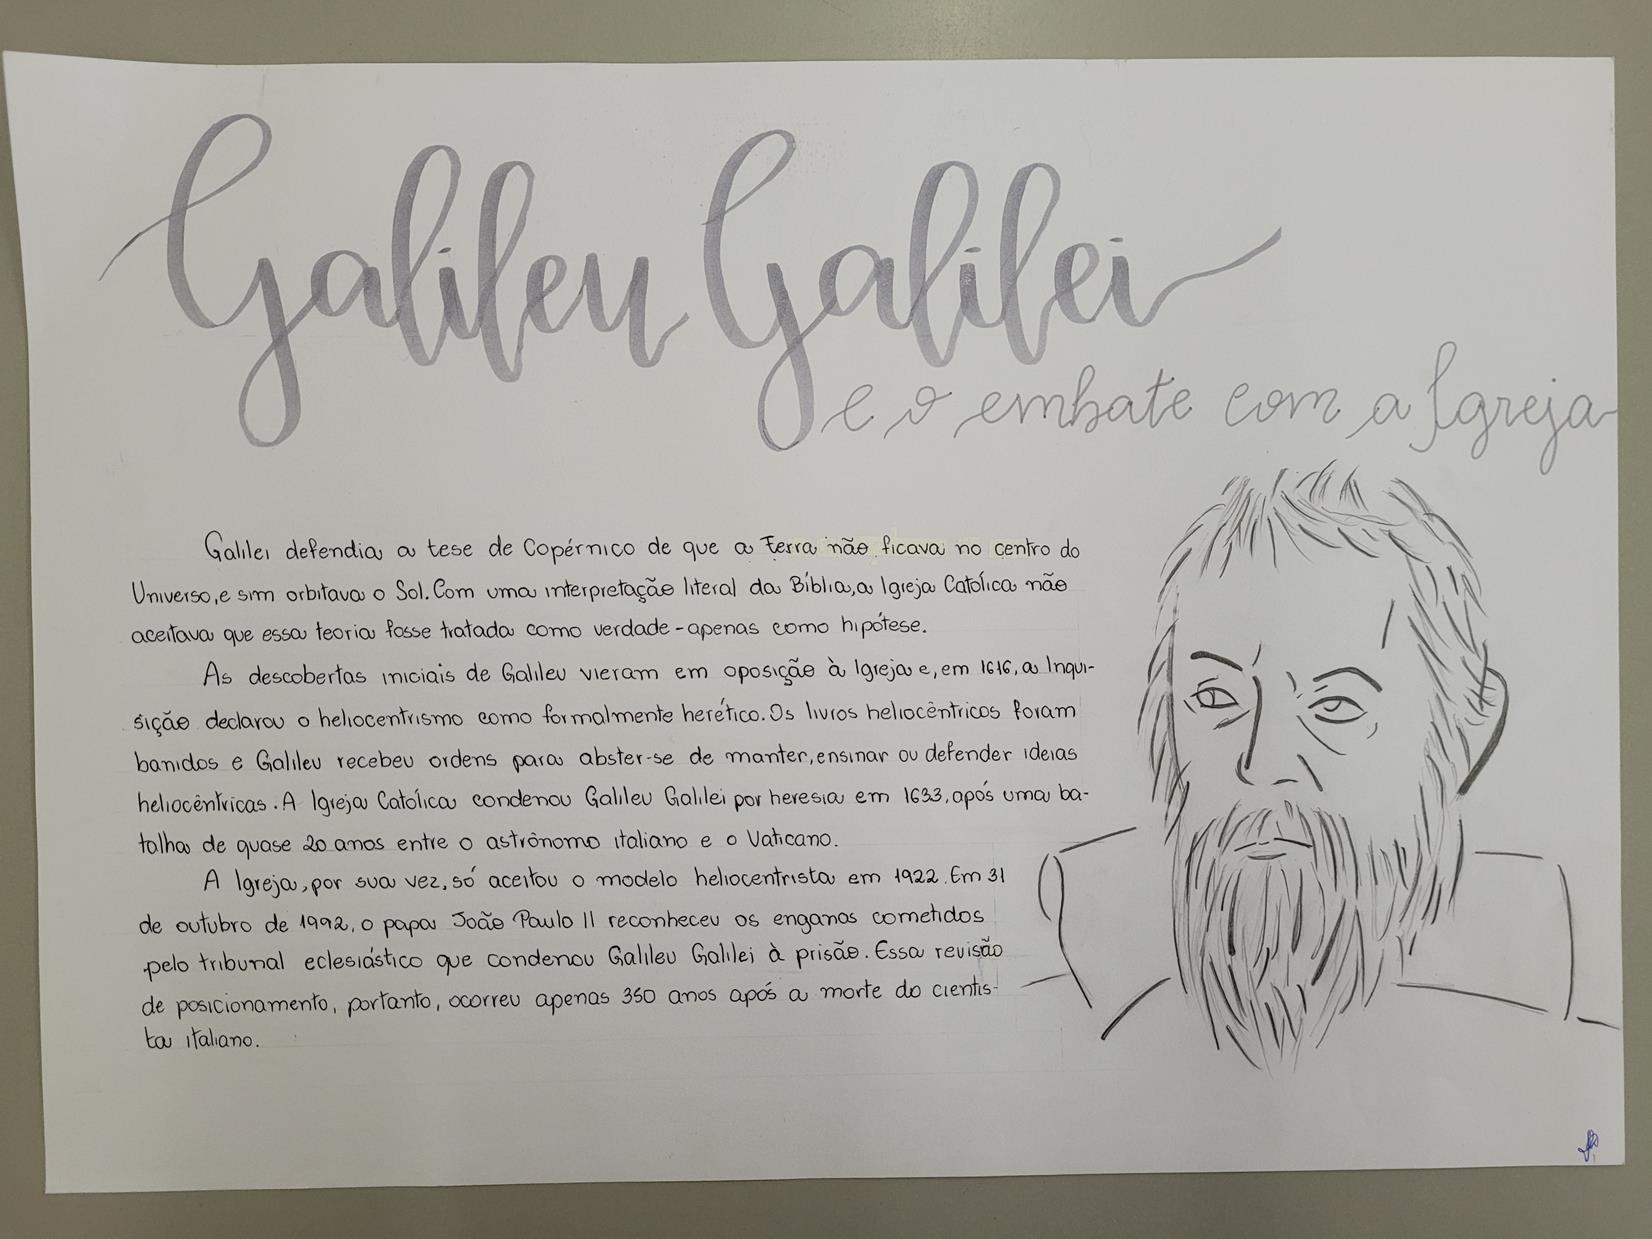 Galileu Galilei
e o embate com a Igreja
Galilei defendia a tese de Copérnico de que a Terra não ficava no centro do
Universo, e sim orbitava o Sol. Com uma interpretação literal da Bíblia, a Igreja Católica não
aceitava que essa teoria fosse tratada como verdade - apenas como hipótese.
As descobertas iniciais de Galileu vieram em oposição à Igreja e, em 1616, a Inqui-
sição declarou o heliocentrismo como formalmente herético. Os livros heliocêntricos foram
banidos e Galileu recebeu ordens para abster-se de manter, ensinar ou defender ideias
heliocêntricas. A Igreja Católica condenou Galileu Galilei por heresia em 1633, após uma ba-
talha de quase 20 anos entre o astrônomo italiano e o Vaticano.
A Igreja, por sua vez, só aceitou o modelo heliocentrista em 1922. Em 31
de outubro de 1992, o papa João Paulo II reconheceu os enganos cometidos
pelo tribunal eclesiástico que condenou Galileu Galilei à prisão. Essa revisão
de posicionamento, portanto, ocorreu apenas 350 anos após a morte do cientis-
ta italiano.